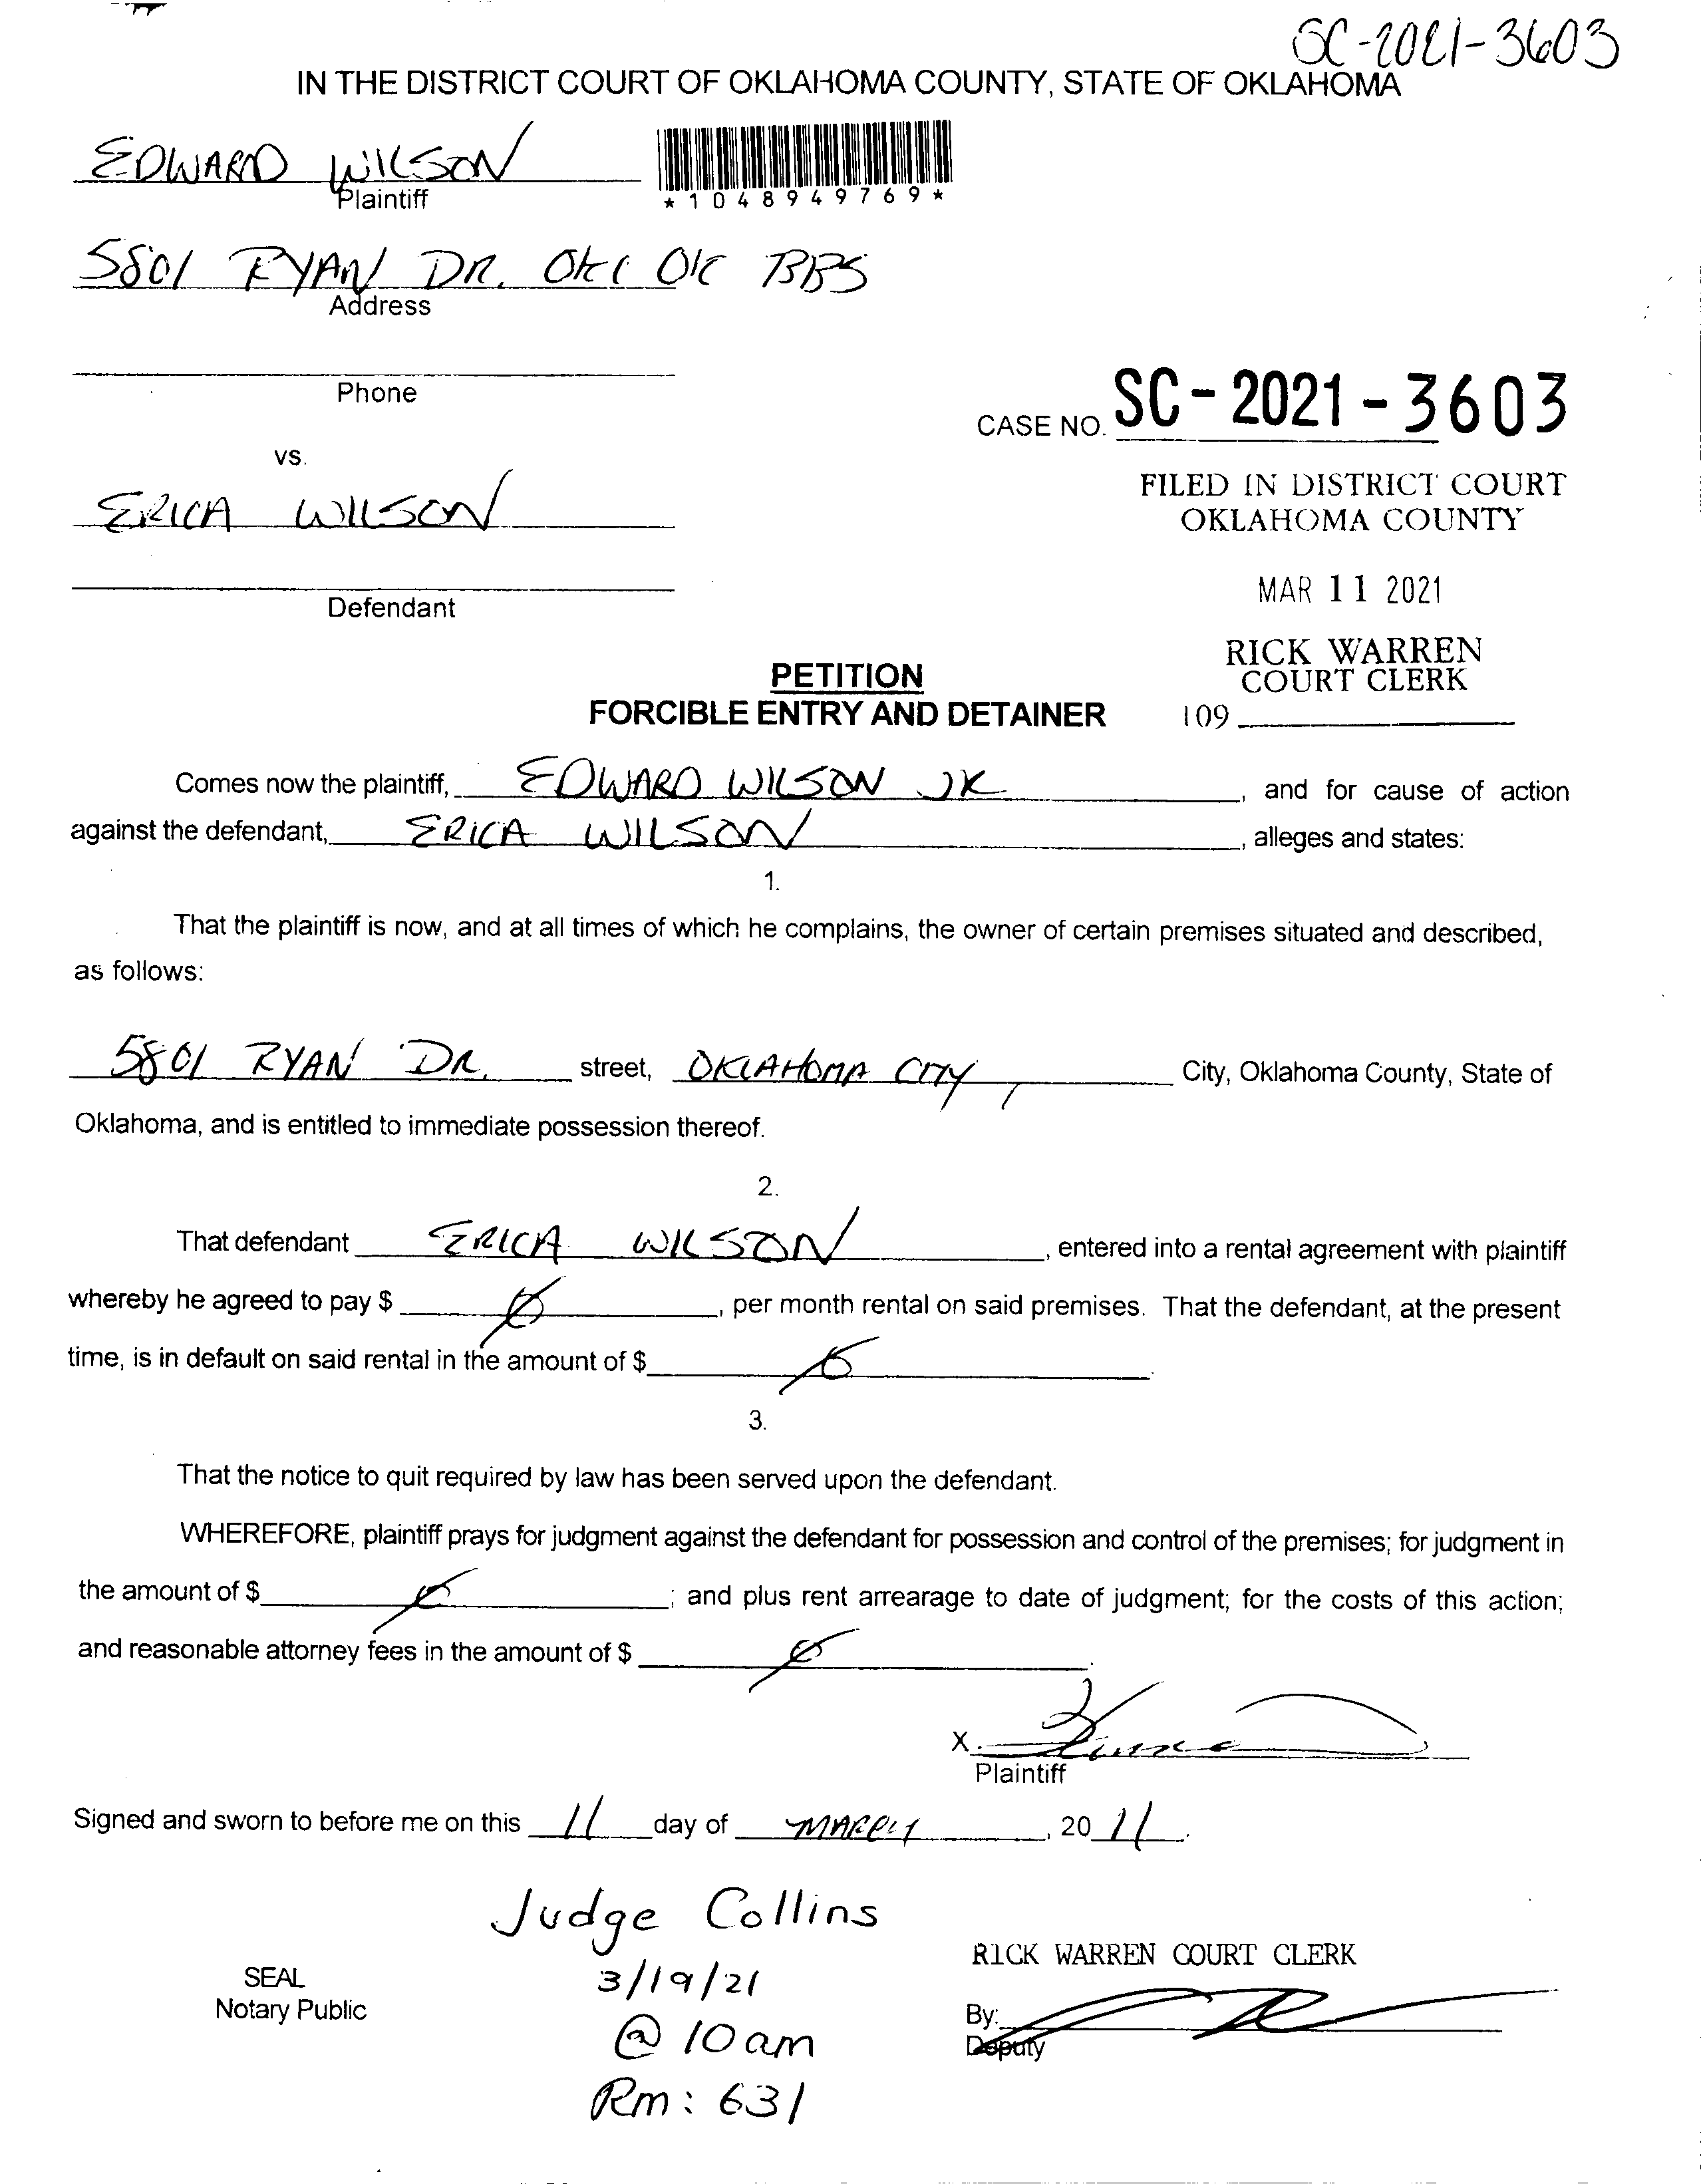 SC-2021-3603
IN THE DISTRICT COURT OF OKLAHOMA COUNTY, STATE OF OKLAHOMA
EDWARD WILSON
Plaintiff
*1048949769*
5801 RYAN DR. OKC OK
Address
Phone
CASE NO. SC-2021-3603
vs.
FILED IN DISTRICT COURT
OKLAHOMA COUNTY
ERICA WILSON
MAR 11 2021
Defendant
RICK WARREN
COURT CLERK
109
PETITION
FORCIBLE ENTRY AND DETAINER
Comes now the plaintiff, EDWARD WILSON JR, and for cause of action
against the defendant, ERICA WILSON, alleges and states:
1.
That the plaintiff is now, and at all times of which he complains, the owner of certain premises situated and described,
as follows:
5801 RYAN DR. street, OKLAHOMA CITY, City, Oklahoma County, State of
Oklahoma, and is entitled to immediate possession thereof.
2.
That defendant ERICA WILSON, entered into a rental agreement with plaintiff
whereby he agreed to pay $ Ø, per month rental on said premises. That the defendant, at the present
time, is in default on said rental in the amount of $ Ø.
3.
That the notice to quit required by law has been served upon the defendant.
WHEREFORE, plaintiff prays for judgment against the defendant for possession and control of the premises; for judgment in
the amount of $ Ø; and plus rent arrearage to date of judgment; for the costs of this action;
and reasonable attorney fees in the amount of $ Ø.
X
Plaintiff
Signed and sworn to before me on this 11 day of MARCH, 20 11.
Judge Collins
3/19/21
@ 10am
Rm: 631
SEAL
Notary Public
RICK WARREN COURT CLERK
By:
Deputy